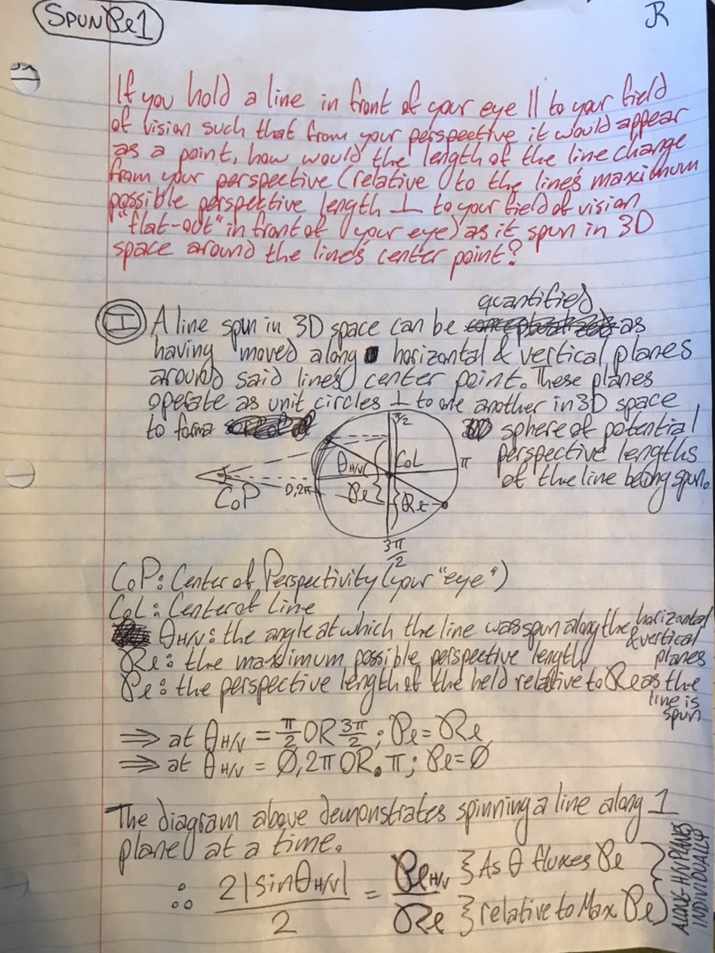 SPUN Pe 1
JR
If you hold a line in front of your eye || to your field
of vision such that from your perspective it would appear
as a point, how would the length of the line change
from your perspective (relative to the line's maximum
possible perspective length ⊥ to your field of vision
"flat-out" in front of your eye) as it spun in 3D
space around the line's center point?
quantified
I A line spun in 3D space can be as
having moved along horizontal & vertical planes
around said lines center point. These planes
operate as unit circles ⊥ to one another in 3D space
to form a sphere of potential
perspective lengths
of the line being spun.
π/2
θH/V CoL π
CoP 0,2π Pe Re
3π/2
CoP: Center of Perspectivity (your "eye")
CoL: Center of Line
θH/V: the angle at which the line was spun along the horizontal & vertical planes
Re: the maximum possible perspective length
Pe: the perspective length of the held relative to Re as the line is spun
⇒ at θH/V = π/2 OR 3π/2; Pe = Re
⇒ at θH/V = Ø, 2π OR π; Pe = Ø
The diagram above demonstrates spinning a line along 1
plane at a time.
∴ 2|sinθH/V|/2 = PeH/V/Re } As θ fluxes Pe } relative to Max Pe }
ALONG H/V PLANES INDIVIDUALLY